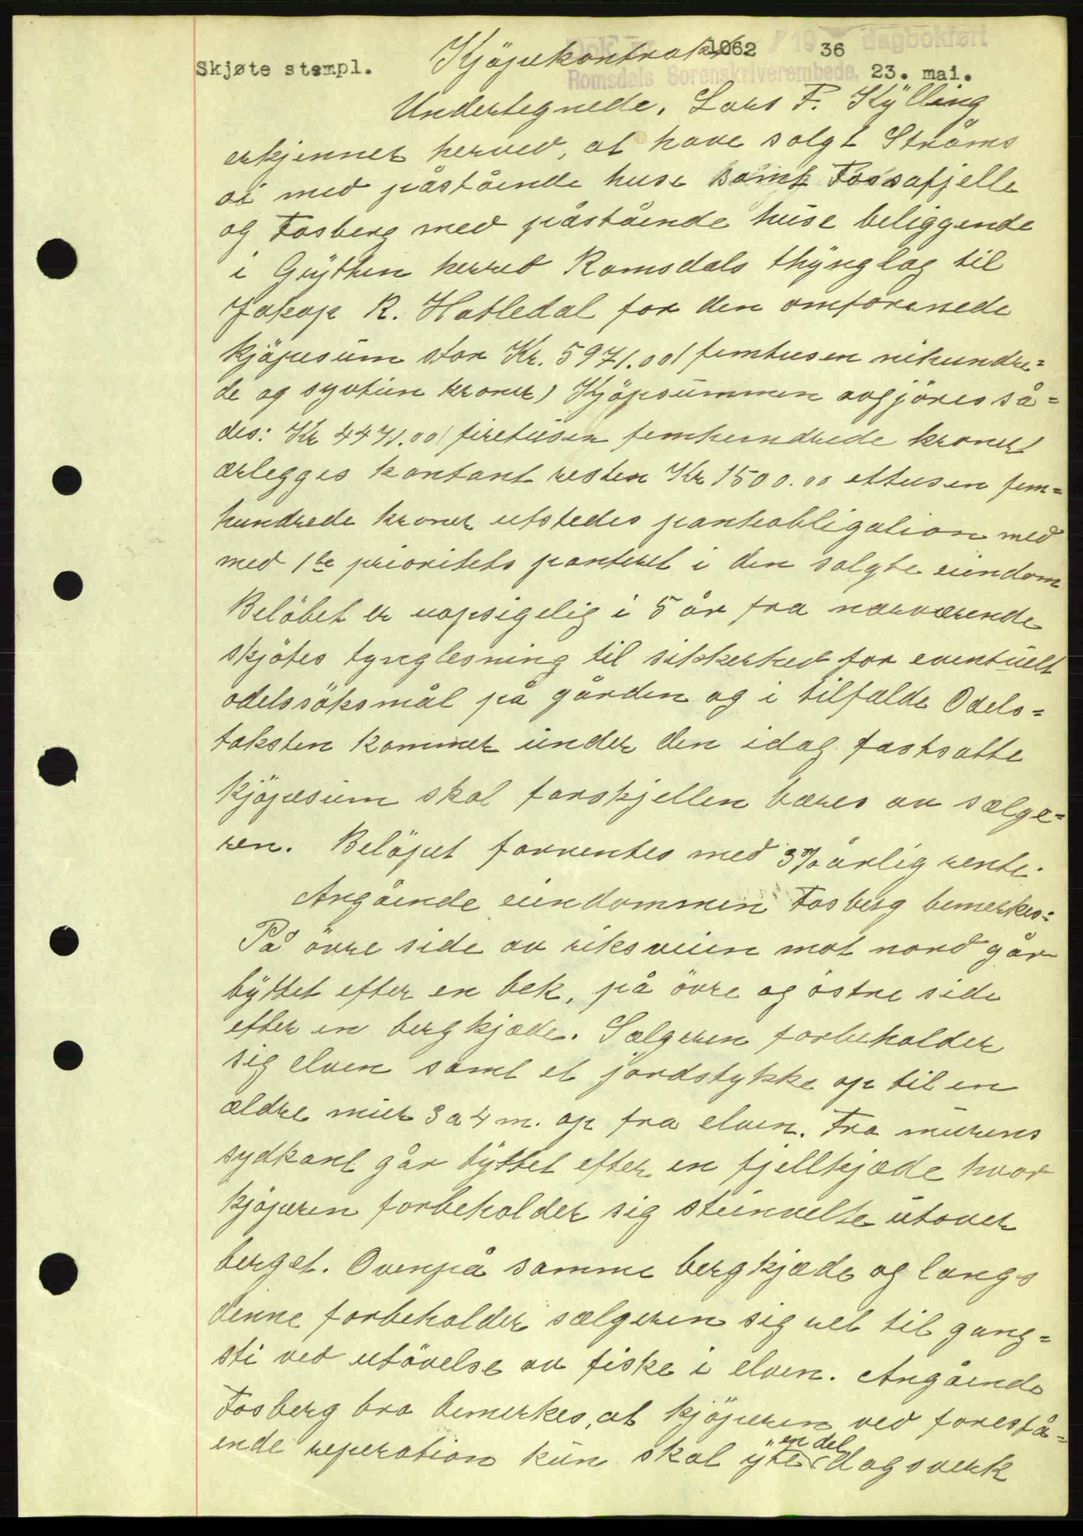 Dok. 1062 / 1936 dagbokført
Romsdals Sorenskriverembede, 23. mai.
Skjøte stempl.
Kjöpekontrakt
Undertegnede, Lars P. Kÿlling
erkjenner herved, at have solgt Ströms
öi med påstående huse samt Fossafjelle
og Fosberg med påstående huse beliggende
i Grÿtten herred Romsdals thÿnglag til
Jakop R. Hatledal for den omforenede
kjöpesum stor Kr. 5971.00 (femtusen nihundre=
de og syvtiin kroner) Kjöpsummen avgjöres så=
des: Kr 4471.00 (firetusen femhundrede kroner)
ærlegges kontant resten Kr 1500.00 ettusen fem=
hundrede kroner utstedes panteobligation med
med 1ste prioritets panteret i den solgte eiendom
Belöbet er uopsigelig i 5 år fra nærværende
skjötes tynglesning til sikkerhed for eventuelt
odelssöksmål på gården og i tilfælde Odels=
taksten kommer under den idag fastsatte
kjöpesum skal forskjellen bæres av sælge=
ren. Belöpet forrentes med 3% årlig rente.
Angående eiendommen Fosberg bemerkes:
På övre side av riksveien mot nord går
bÿttet efter en bek, på övre og östre side
efter en bergkjæde. Sælgeren forbeholder
sig elven samt et jordstykke op til en
ældre mur 3 a 4 m. op fra elven. Fra murens
sydkant går bÿttet efter en fjellkjæde hvor
kjöperen forbeholder sig steinvelte utover
berget. Ovenpå samme bergkjæde og langs
denne forbeholder sælgeren sig ret til gang=
sti ved utövelse av fiske i elven. Angående
Fosberg bro bemerkes, at kjöperen ved forestå=
ende reperation kun skal ÿte en del dagsverk